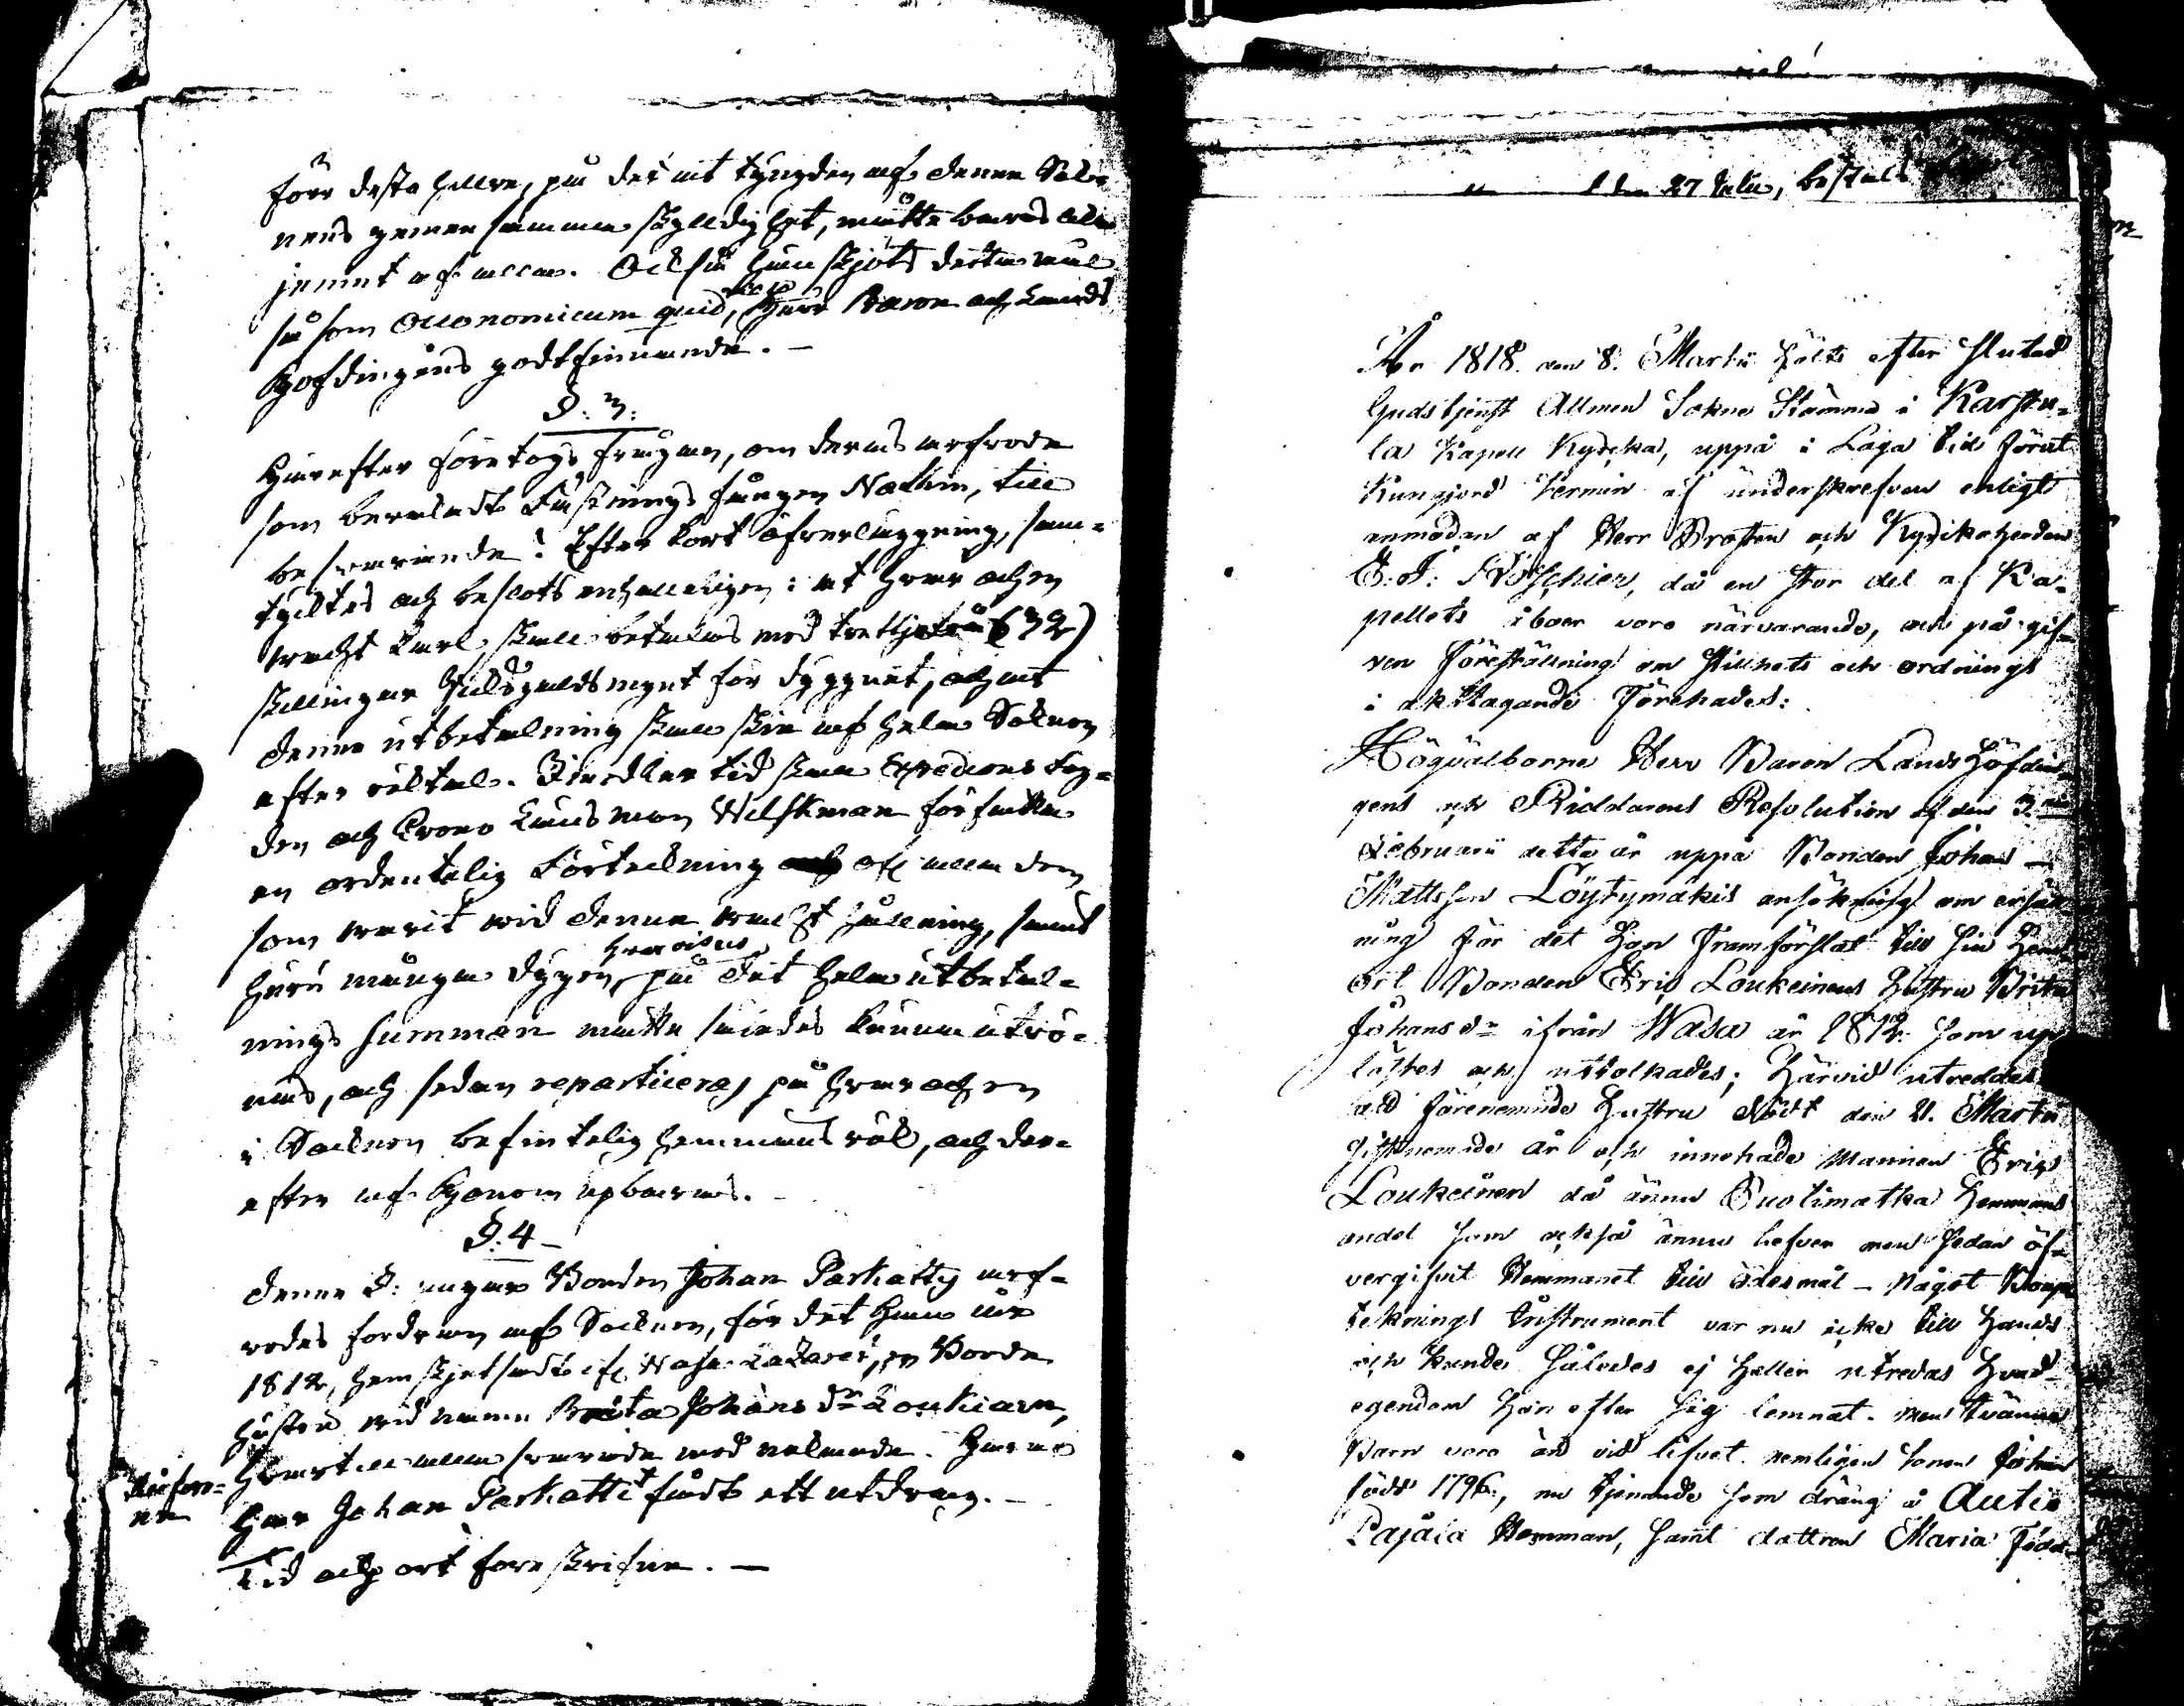 förr desta hellre, på det at tyngden af denna Sok-
nens gemensamma skyldighet, måtte bäras all-
jemnt af alla. Och så hemskjöts detta mål
såsom Oeconomicum quid, Herr Baron och Lands
Höfdingens godtfinnande. —
§. 3.
Härefter företogs frågan, om deras arfvode
som bevakadt Fästnings fången Nathin, till
besvarande? Efter kort öfverläggning, sam-
tyktes och beslöts enhälleligen: at hvar och en
vakt karl, skall betalas med trettjotvå (32)
skillingar Riksgälds mynt för dygnet, och at
denna utbetalning skall ske af hela Soknen
efter röktal. Imedler tid skall Expeditions fog-
den och Crono Länsman Wilskman författa
en ordentelig Förtekning öfver alla dem
som varit vid denna vakt hållning, samt
huru många dygn, hvar och en
på det hela utbetal-
nings Summan måtte således kunna utrö-
nas, och sedan reparticeras på hvar och en
i Socknen befintelig hemmans rök, och der-
efter af Honom upbäras.
§. 4 –
Denna §: angår Bonden Johan Parkatty arf-
vodes fordran af Socknen, för det Han år
1812, hemskjutsadt ifr. Wasa Lazaret, en Bonde
hustru vid namn Brita Johans dr Loukiain,
Hvartill alla svarade med nekande. Häraf
har Johan Parkatti fådt ett utdrag. –
Tid och ort föreskrifne. —
den 27 Julii,
År 1818. den 8. Martii hölts efter slutad
Gudstjenst Allmen Sokne Stämma i Karstu-
la Kapell Kyrcka, uppå i Laga tid förut
Kungjord termin af underskrefven enligt
anmodan af Herr Prosten och Kyrkoherden
då en stor del af Ka-
pellets åboer voro närvarande, och på gif-
ven föreställning om stillhets och ordnings
i akttagande Förehades:
Högvälborne Herr Baron Lands Höfdin-
gens och Riddarens Resolution af den 3
Februarii detta år uppå Bonden Johan
Mattsson Löytymäkis ansökning om ersätt-
ning för det Han framförslat till sin Hem-
ort Bonden Eric Loukeinens Hustru Brita
Johans dr ifrån Wasa år 1812. som up-
lästes och uttolkades; Härvid utreddes
att förenemnde Hustru dödt den 21. Martii
sistnemnde år och innehade mannen Eric
Loukeinen då ännu Puolimatka Hemmans
andel som också ännu lefver men sedan öf-
vergifvit Hemmanet till ödesmål – något Boupp-
tecknings Instrument var nu icke till hands
och kunde således ej heller utredas hvad
egendom hon efter sig lemnat. men tvänne
Barn voro än vid lifvet. nemligen Sonen Johan
född 1796, nu tjenande som dräng å Autio
Pajala Hemman, samt dottren Maria född